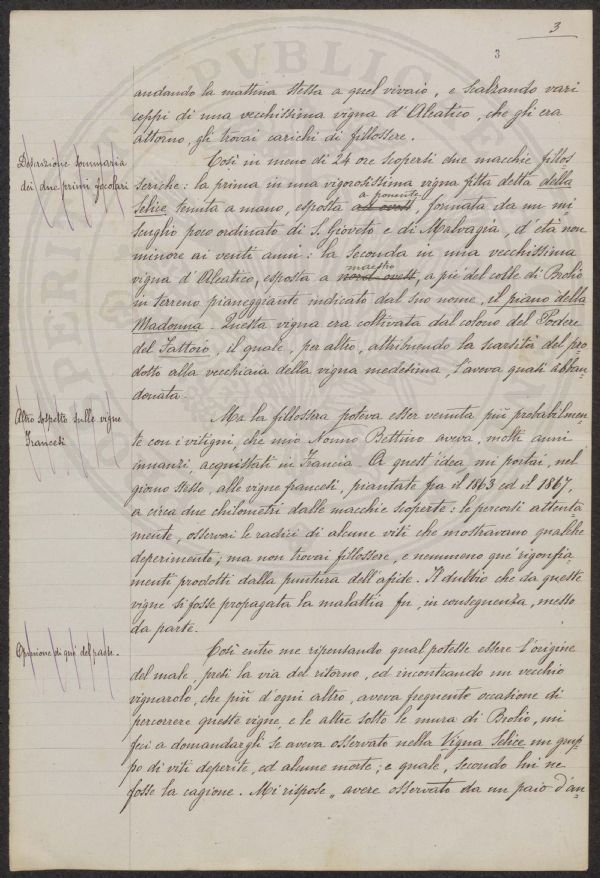 3
3
andando la mattina stessa a quel vivaio, e scalzando vari
ceppi di una vecchissima vigna d'Aleatico, che gli era
attorno, gli trovai carichi di fillossere.
Descrizione sommaria
dei due primi focolari
Così in meno di 24 ore scopersi due macchie fillos
seriche: la prima in una vigorosissima vigna fitta detta della
Selice, tenuta a mano, esposta a ponente ad ovest, formata da un mi
scuglio poco ordinato di S. Gioveto e di Malvagia, d'età non
minore ai venti anni: la seconda in una vecchissima
vigna d'Aleatico, esposta a maestro nord ovest, a piè del colle di Brolio
in terreno pianeggiante indicato dal suo nome, il piano della
Madonna. Questa vigna era coltivata dal colono del Podere
del Fattoio, il quale, per altro, attribuendo la scarsità del pro-
dotto alla vecchiaia della vigna medesima, l'aveva quasi abban-
donata.
Altro sospetto sulle vigne
Francesi
Ma la fillossera poteva esser venuta più probabilmen-
te con i vitigni, che mio Nonno Bettino aveva, molti anni
innanzi, acquistati in Francia. A quest'idea mi portai, nel
giorno stesso, alle vigne francesi, piantate fra il 1863 ed il 1867,
a circa due chilometri dalle macchie scoperte: le percorsi attenta-
mente, osservai le radici di alcune viti che mostravano qualche
deperimento; ma non trovai fillossere, e nemmeno que' rigonfia-
menti prodotti dalla puntura dell'afide. Il dubbio che da queste
vigne si fosse propagata la malattia fu, in conseguenza, messo
da parte.
Opinione di qui del paese.
Così entro me ripensando qual potesse essere l'origine
del male, presi la via del ritorno, ed incontrando un vecchio
vignarolo, che più d'ogni altro, aveva frequente occasione di
percorrere queste vigne, e le altre sotto le mura di Brolio, mi
feci a domandargli se aveva osservato nella Vigna Selice un grup-
po di viti deperite, ed alcune morte; e quale, secondo lui ne
fosse la cagione. Mi rispose „ avere osservato da un paio d'an-